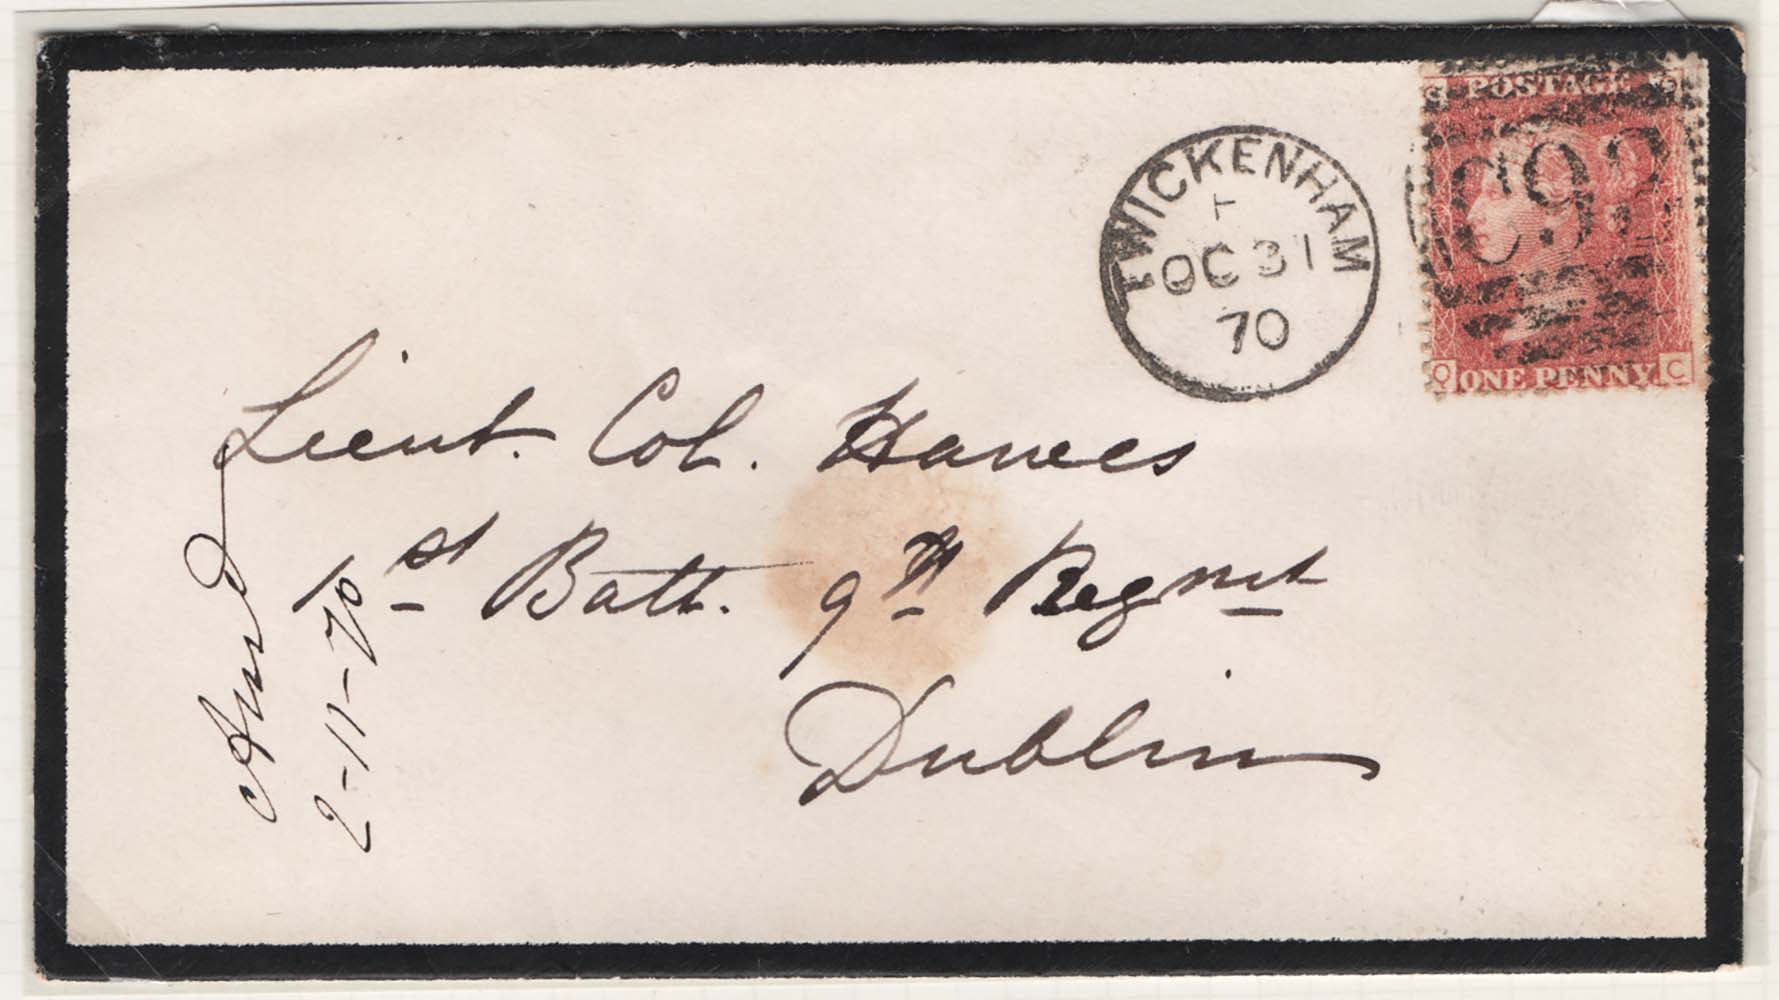 TWICKENHAM
F
OC 31
70
C POSTAGE Q
C93
Q ONE PENNY. C
Lieut. Col. Hawes
1st Batt. 9th Regmt
Dublin
Ansd
2-11-70